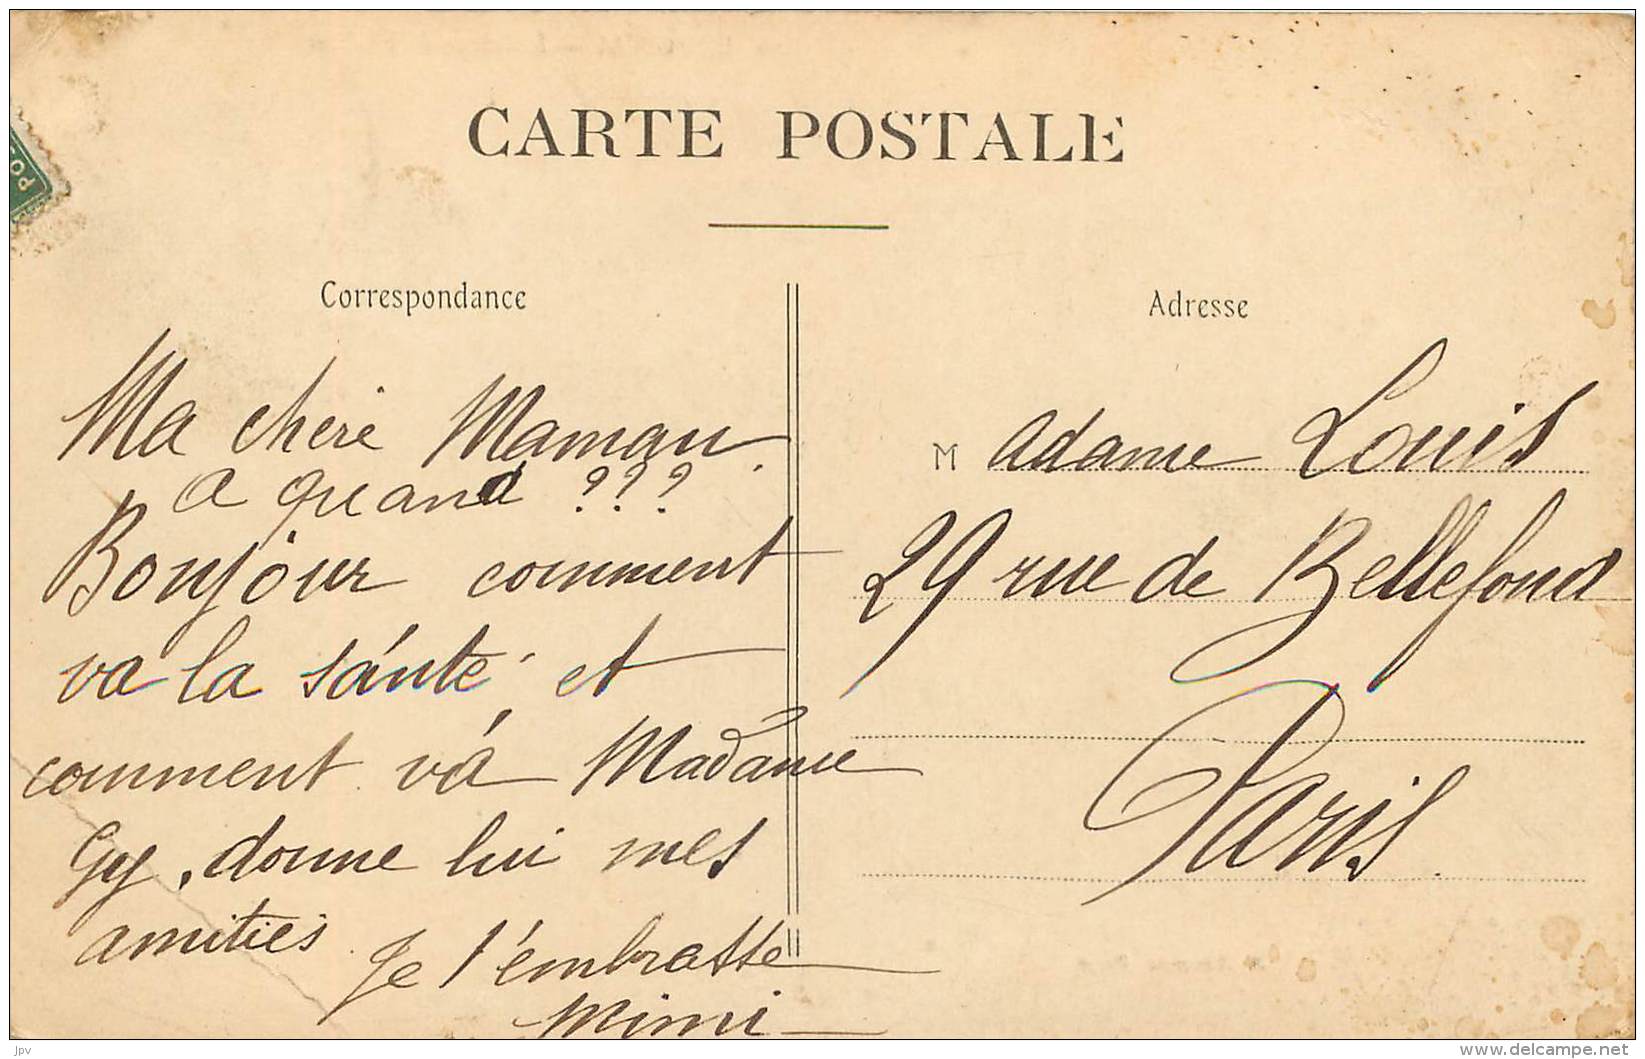 CARTE POSTALE
PO
Correspondance
Ma chère Maman.
a quand ???
Bonjour comment
va la sánté et
comment vá Madame
Gy, donne lui mes
amitiés. Je t'embrasse
Mimi
Adresse
Madame Louis
29 rue de Bellefond
Paris.
jpv
delcampe.net